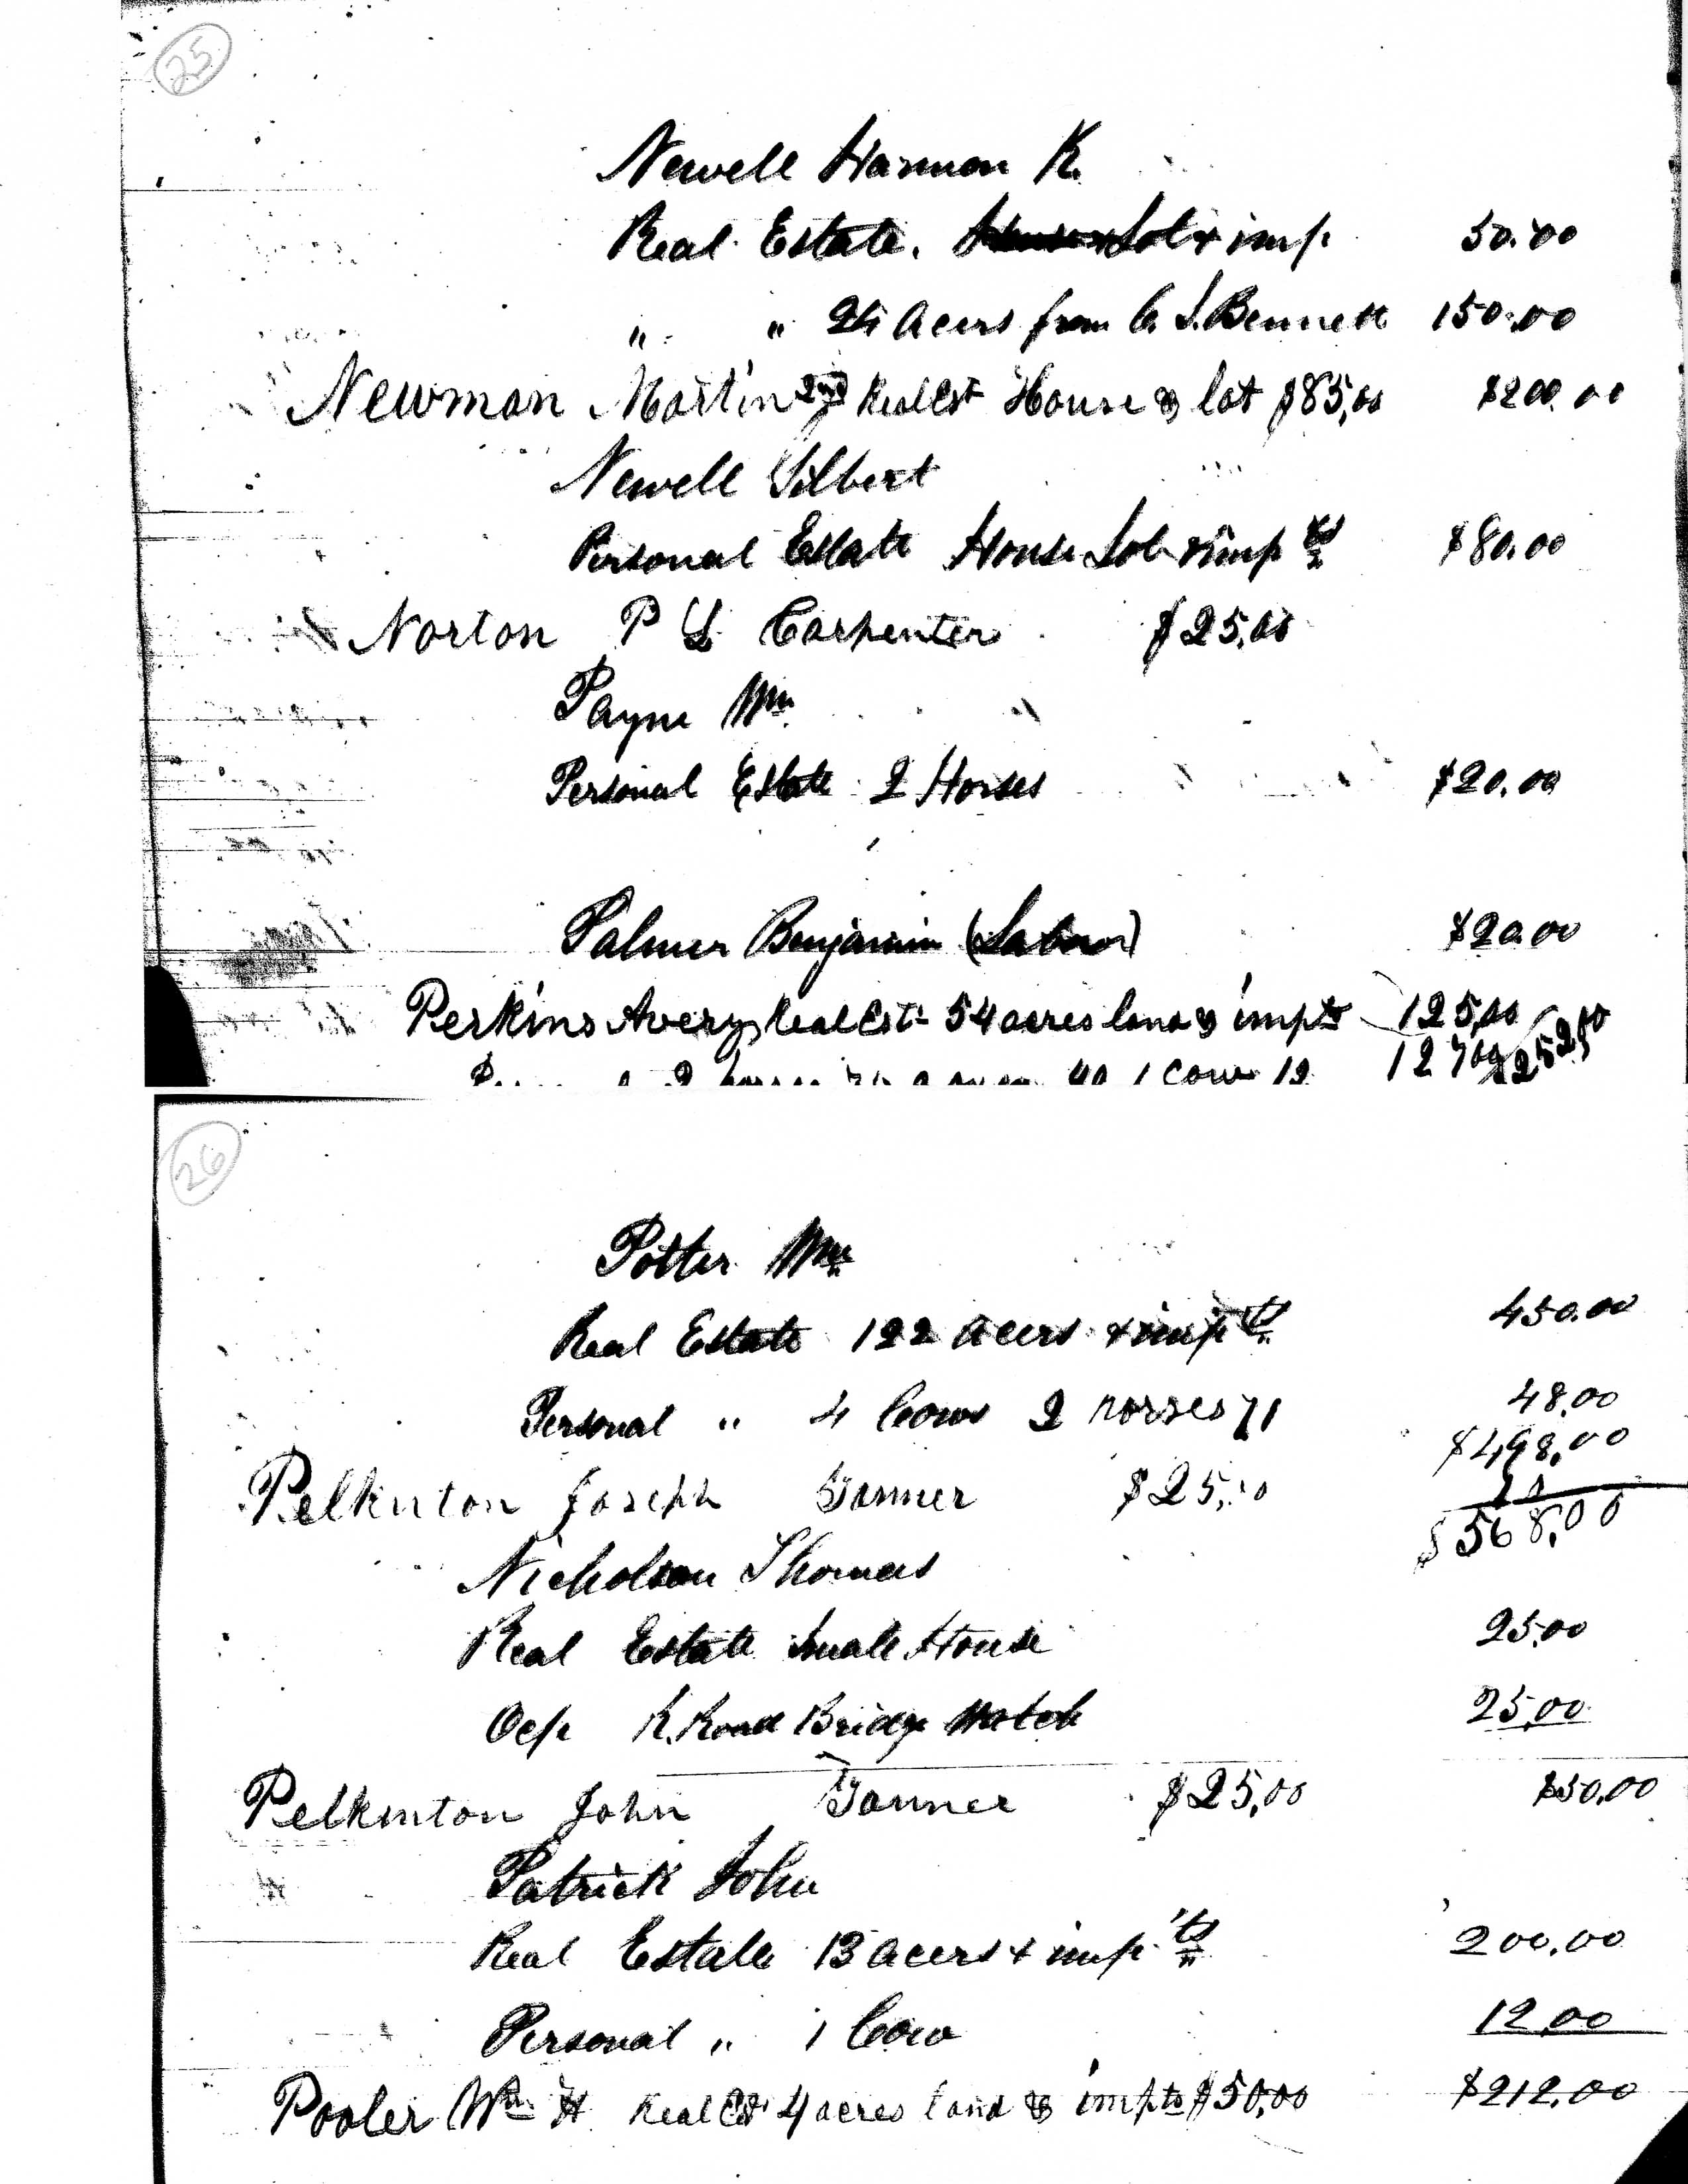 25
Newell Harmon K.
Real Estate. Lot & imp 50.00
" " 24 Acers from C. S. Bennett 150.00
Newman Martin 2nd Real Est House & lot $85,00 $200.00
Newell Gilbert
Personal Estate House Lot & imp ts $80.00
Norton P L Carpenter $25,00
Payne Wm
Personal Estate 2 Horses $20.00
Palmer Benjamin (Labor) $20.00
Perkins Avery Real Est 54 acres land & impts 125,00
40 1 Cow 12 127,00 252,00
26
Potter Wm
Real Estate 122 acers & imp ts 450.00
Personal " 4 Cows 2 horses 48,00
$498,00
Pelkinton Joseph Tanner $25,00
$568,00
Nicholson Thomas
Real Estate Small House 25,00
Ocp R. Road Bridge Watch 25,00
Pelkinton John Tanner $25,00 $50,00
Patrick John
Real Estate 13 acers & imp ts 200,00
Personal " 1 Cow 12,00
Pooler Wm H Real Est 4 acres land & impts $50,00 $212,00